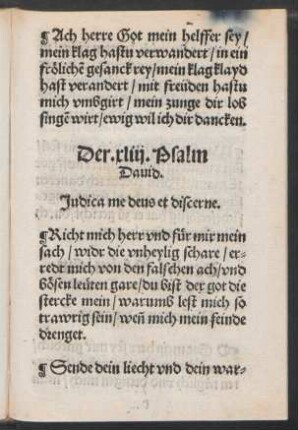 ¶Ach herre Got mein helffer sey/
mein klag hastu verwandert / in ein
frölichē gesanck rey/mein klag klayd
hast verandert / mit freüden hastu
mich vmbgirt / mein zunge dir lob
singē wirt/ewig wil ich dir dancken.
Der.xliij. Psalm
Dauid.
Judica me deus et discerne.
¶Richt mich herr vnd für mir mein
sach / widr die vnheylig schare / er-
redt mich von den falschen ach/vnd
bösen leüten gare/du bist der got die
stercke mein / warumb lest mich so
trawrig sein/ weñ mich mein feinde
drenget.
¶ Sende dein liecht vnd dein war-